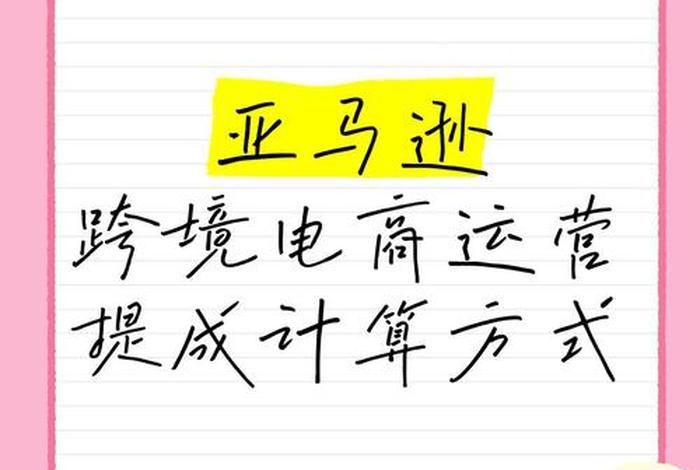 亚马逊
跨境电商运营
提成计算方式